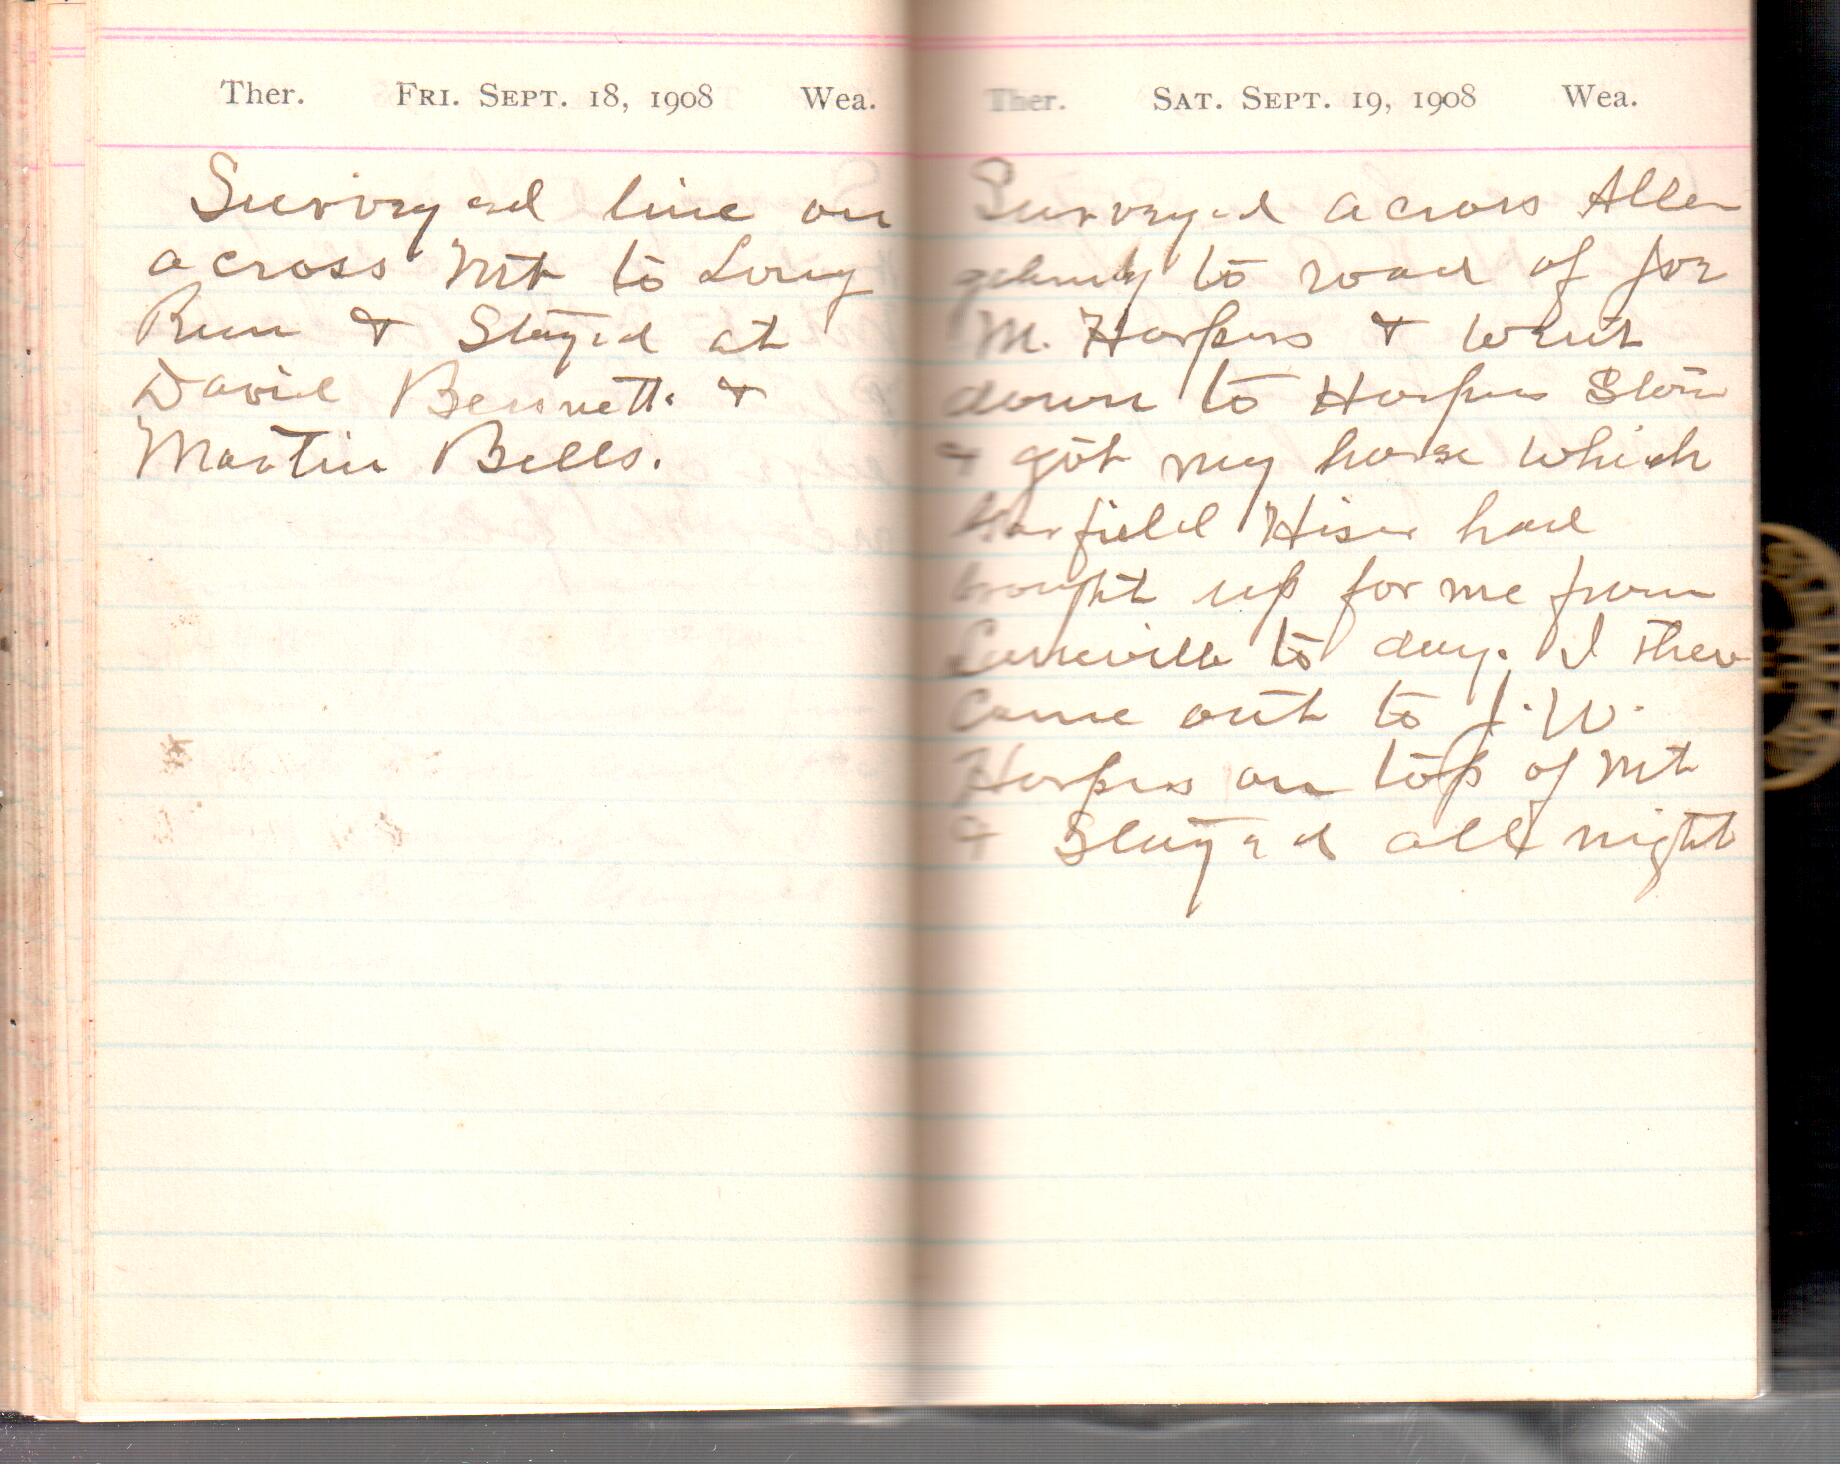 Ther. FRI. SEPT. 18, 1908 Wea.
Surveyed line on
across Mt to Long
Run & Stayed at
David Bennetts &
Martin Bells.
Ther. SAT. SEPT. 19, 1908 Wea.
Surveyed across Alle
gheny to road of Joe
M. Harpers & went
down to Harpers Store
& got my horse which
Garfield Hiser had
brought up for me from
Laneville to day. I then
Came out to J. W.
Harpers on top of Mt
& Stayed all night